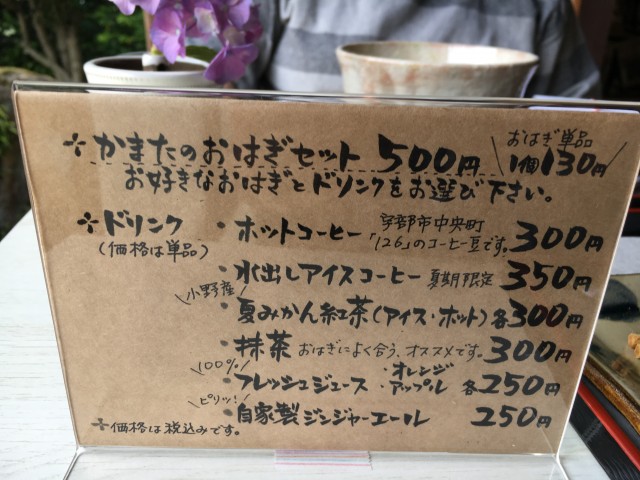 ＊かまたのおはぎセット 500円
おはぎ単品
1個130円
お好きなおはぎとドリンクをお選び下さい。
＊ドリンク
(価格は単品)
・ホットコーヒー 宇部市中央町「126」のコーヒー豆です。 300円
・水出しアイスコーヒー 夏期限定 350円
小野産
・夏みかん紅茶(アイス・ホット)各300円
・抹茶 おはぎによく合う、オススメです。 300円
100%
・フレッシュジュース ・オレンジ ・アップル 各250円
ピリッ!
・自家製ジンジャーエール 250円
＊価格は税込みです。